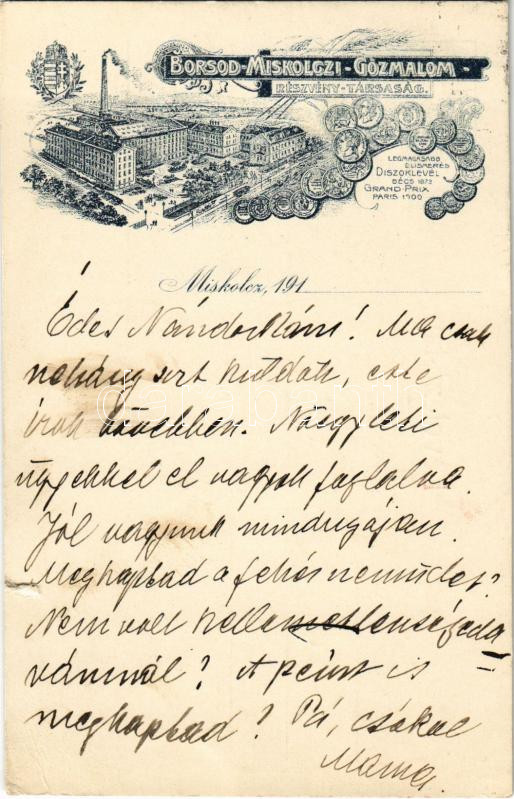 BORSOD-MISKOLCZI-GŐZMALOM
RÉSZVÉNY-TÁRSASÁG.
LEGMAGASABB
ELISMERÉS
DISZOKLEVÉL
BÉCS 1873
GRAND-PRIX
PARIS 1900
Miskolcz, 191
Édes Nándorkám! Ma csak
néhány sort küldök, este
írok bővebben. Négyleti
ügyekkel el vagyok foglalva.
Jól vagyunk mindnyájan.
Megkaptad a fehérneműdet?
Nem volt kellemetlenséged a
vámnál? A pénzt is
megkaptad? Pá, csókol
Mama.